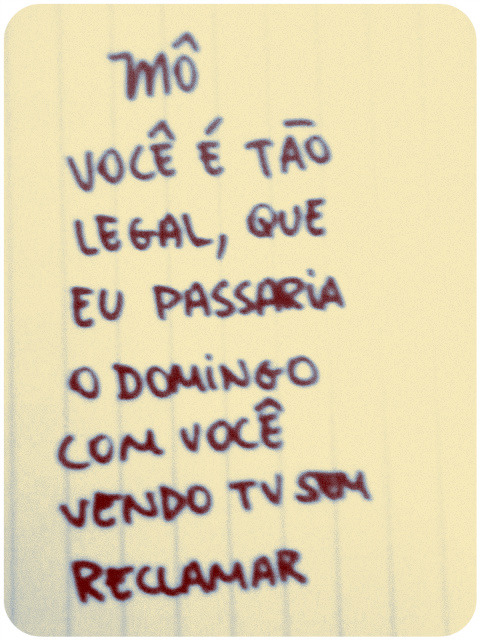 MÔ
VOCÊ É TÃO
LEGAL, QUE
EU PASSARIA
O DOMINGO
COM VOCÊ
VENDO TV SEM
RECLAMAR